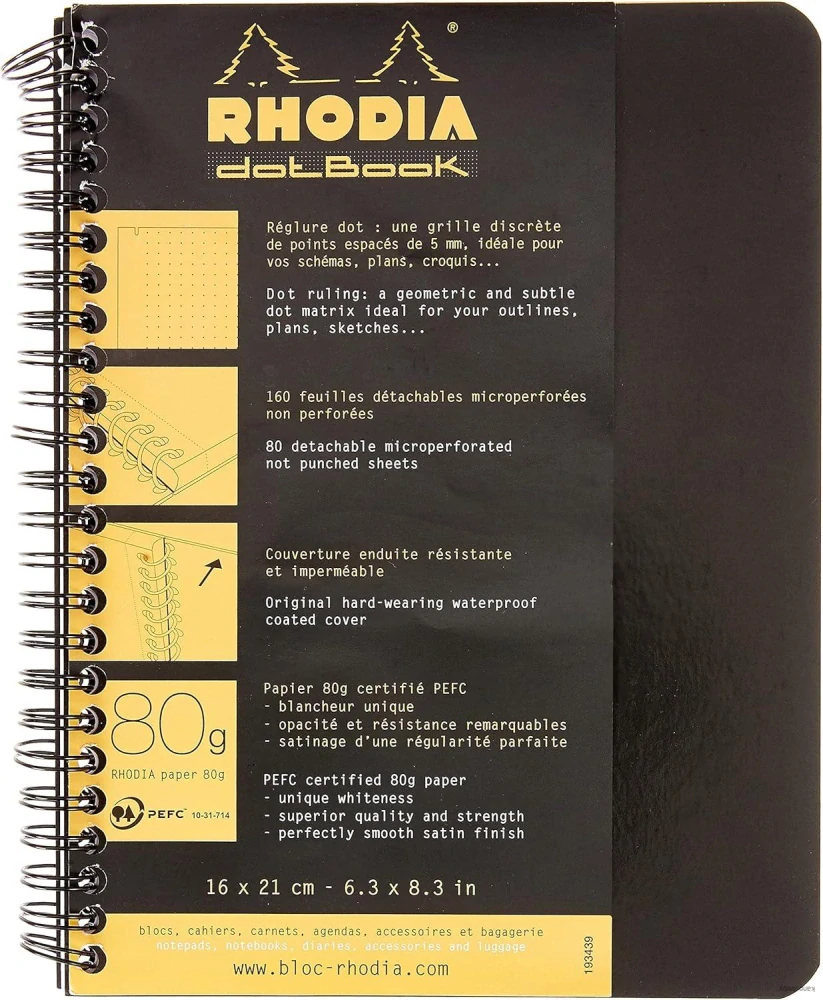 ®
RHODIA
dotBook
Réglure dot : une grille discrète
de points espacés de 5 mm, idéale pour
vos schémas, plans, croquis...
Dot ruling: a geometric and subtle
dot matrix ideal for your outlines,
plans, sketches...
160 feuilles détachables microperforées
non perforées
80 detachable microperforated
not punched sheets
Couverture enduite résistante
et imperméable
Original hard-wearing waterproof
coated cover
80g
RHODIA paper 80g
PEFC™ 10-31-714
Papier 80g certifié PEFC
- blancheur unique
- opacité et résistance remarquables
- satinage d'une régularité parfaite
PEFC certified 80g paper
- unique whiteness
- superior quality and strength
- perfectly smooth satin finish
16 x 21 cm - 6.3 x 8.3 in
blocs, cahiers, carnets, agendas, accessoires et bagagerie
notepads, notebooks, diaries, accessories and luggage
www.bloc-rhodia.com
193439